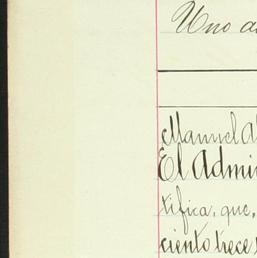 Uno a
Manuel A
El Admi
tifica, que,
ciento trece